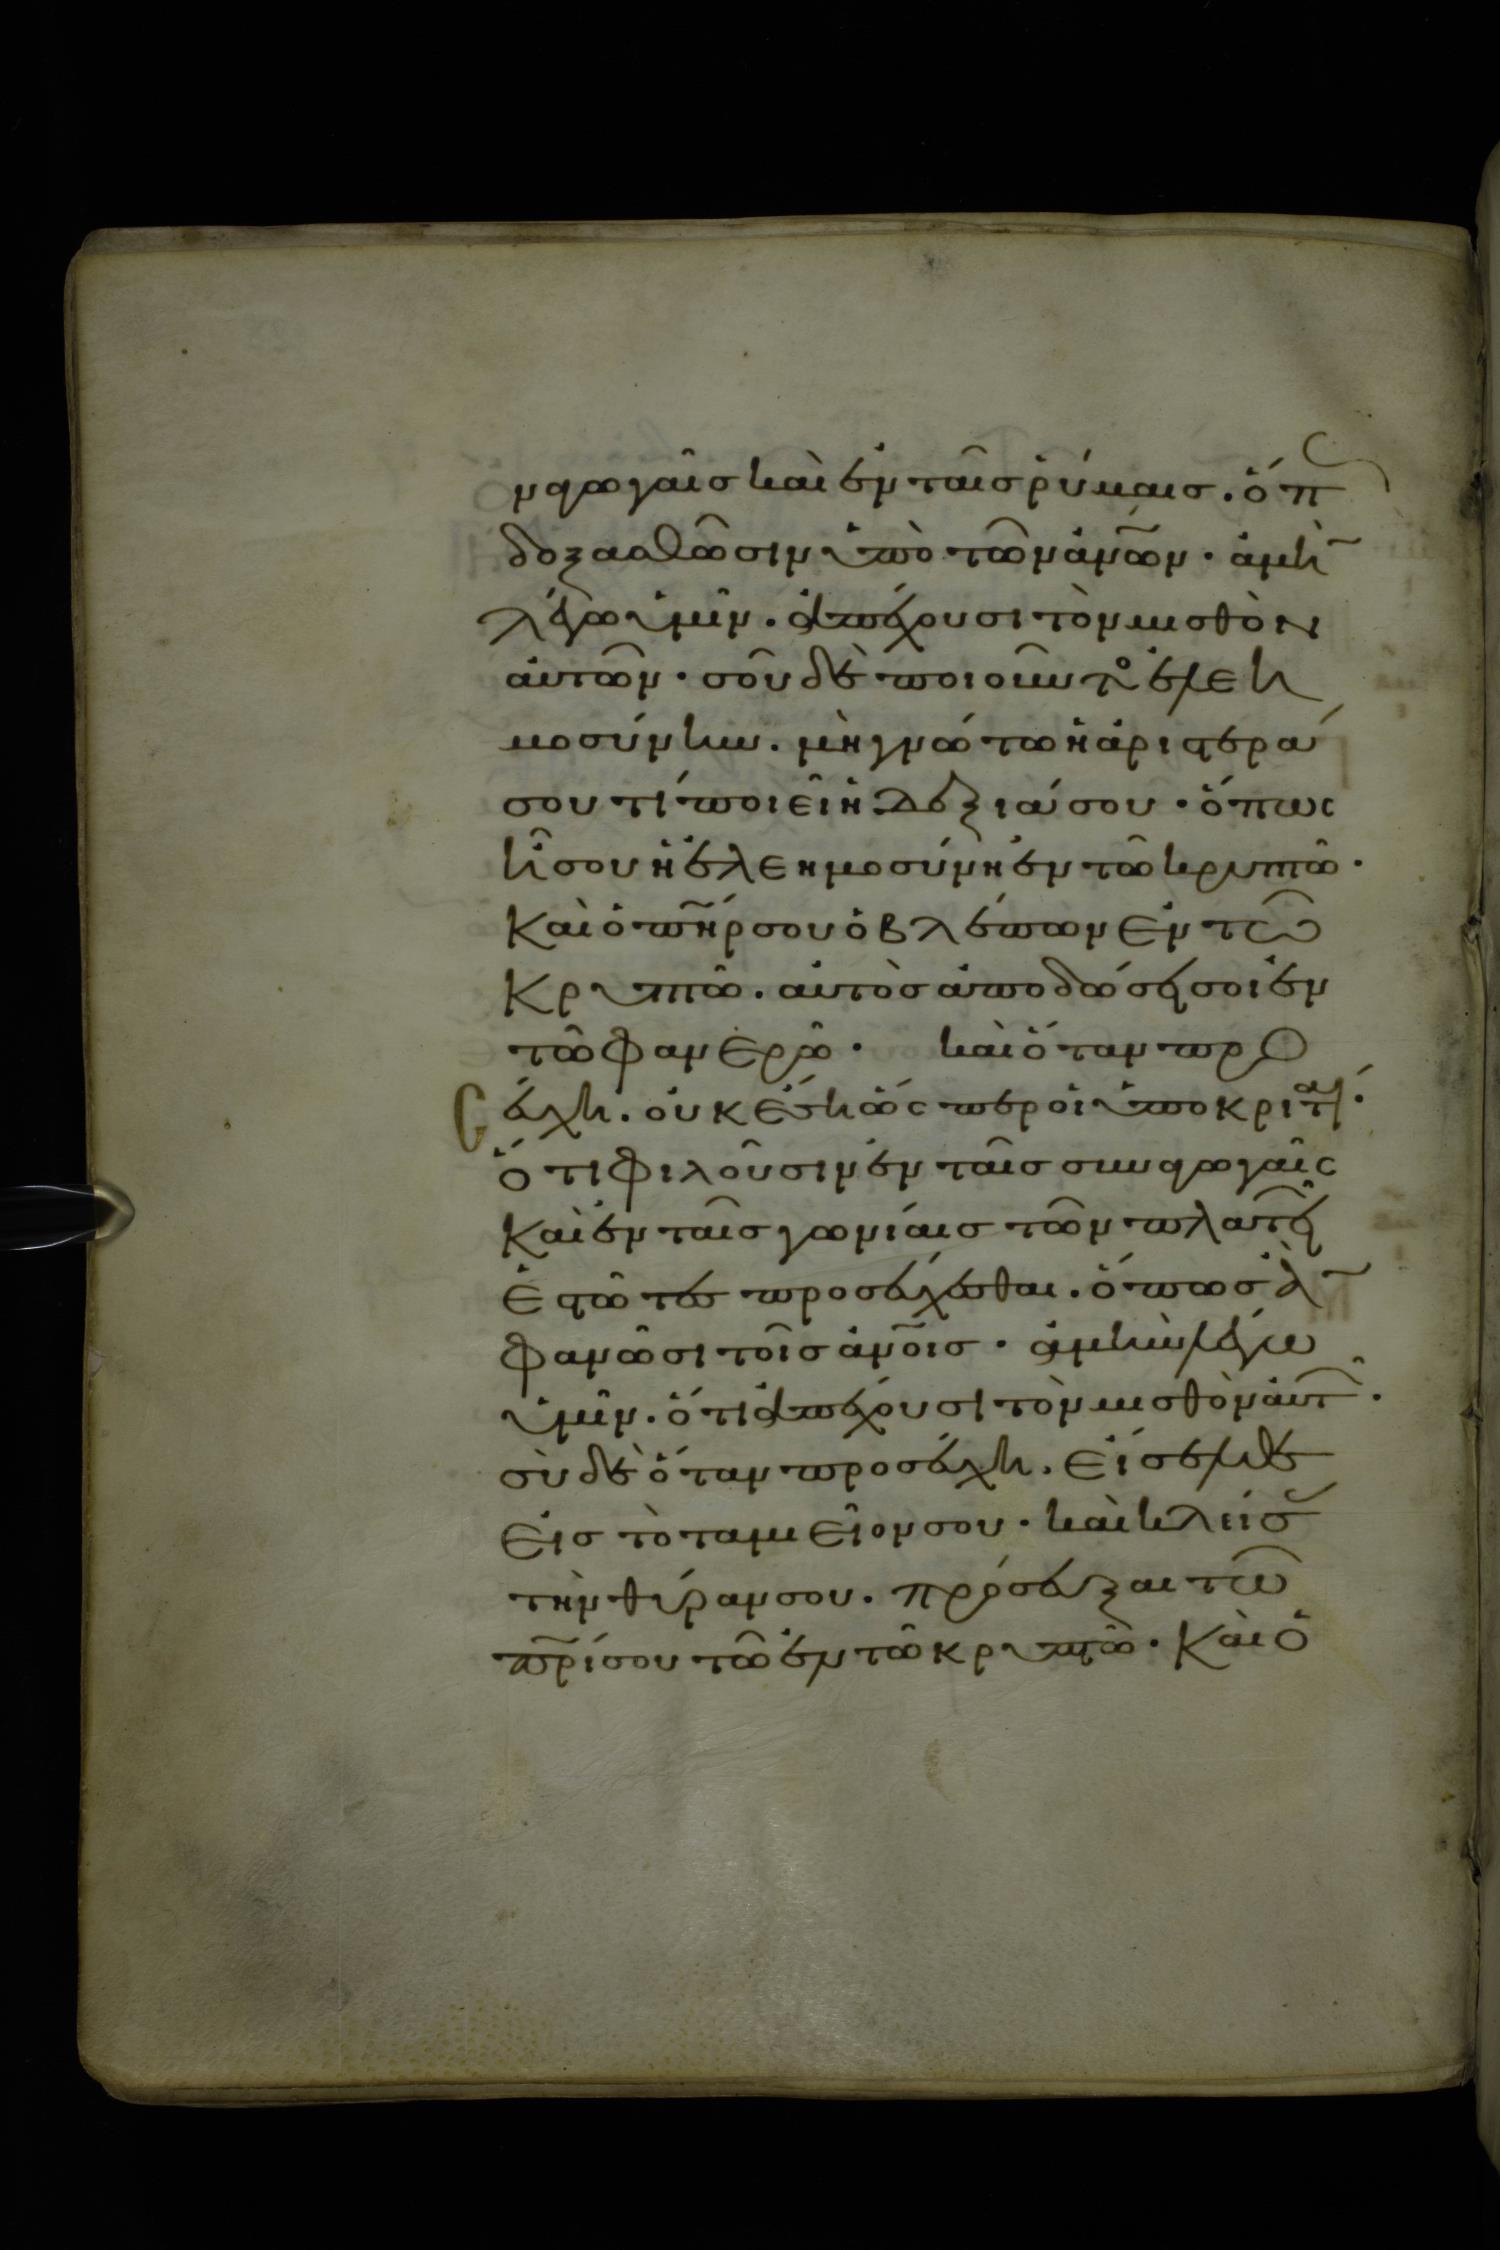 ναγωγαῖς καὶ ἐν ταῖς ῥύμαις. ὅπως
δοξασθῶσιν ὑπὸ τῶν ἀνων· ἀμὴν
λέγω ὑμῖν. ἀπέχουσι τὸν μισθὸν
αὐτῶν· σοῦ δὲ ποιοῦντος ἐλεη
μοσύνην. μὴ γνώτω ἡ ἀριστερά
σου τί ποιεῖ ἡ δεξιά σου· ὅπως
ἦ σου ἡ ἐλεημοσύνη ἐν τῶ κρυπτῶ·
Καὶ ὁ πηρ σου ὁ βλέπων ἐν τῶ
κρυπτῶ. αὐτὸς ἀποδώσει σοι ἐν
τῶ φανερῶ· καὶ ὅταν προς
εύχη. οὐκ ἔση ὥσπερ οἱ ὑποκριταί·
ὅτι φιλοῦσιν ἐν ταῖς συναγωγαῖς
καὶ ἐν ταῖς γωνίαις τῶν πλατειῶν
ἑστῶτες προσεύχεσθαι. ὅπως ἂν
φανῶσι τοῖς ἀνοις· ἀμὴν λέγω
ὑμῖν. ὅτι ἀπέχουσι τὸν μισθὸν αὐτῶν·
σὺ δὲ ὅταν προσεύχη. εἴσελθε
εἰς τὸ ταμεῖον σου· καὶ κλείσας
τὴν θύραν σου. πρόσευξαι τῶ
πρί σου τῶ ἐν τῶ κρυπτῶ· Καὶ ὁ